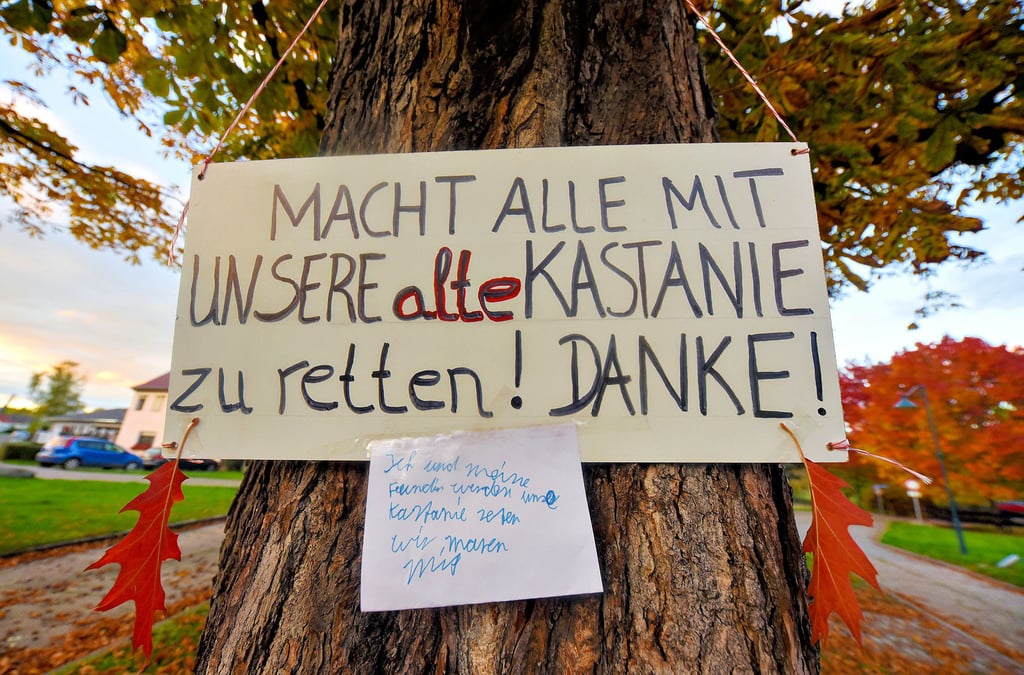 MACHT ALLE MIT
UNSERE alte KASTANIE
zu retten! DANKE!
Ich und meine
Feundin werden unse
Kastanie reten
wir maren
mit